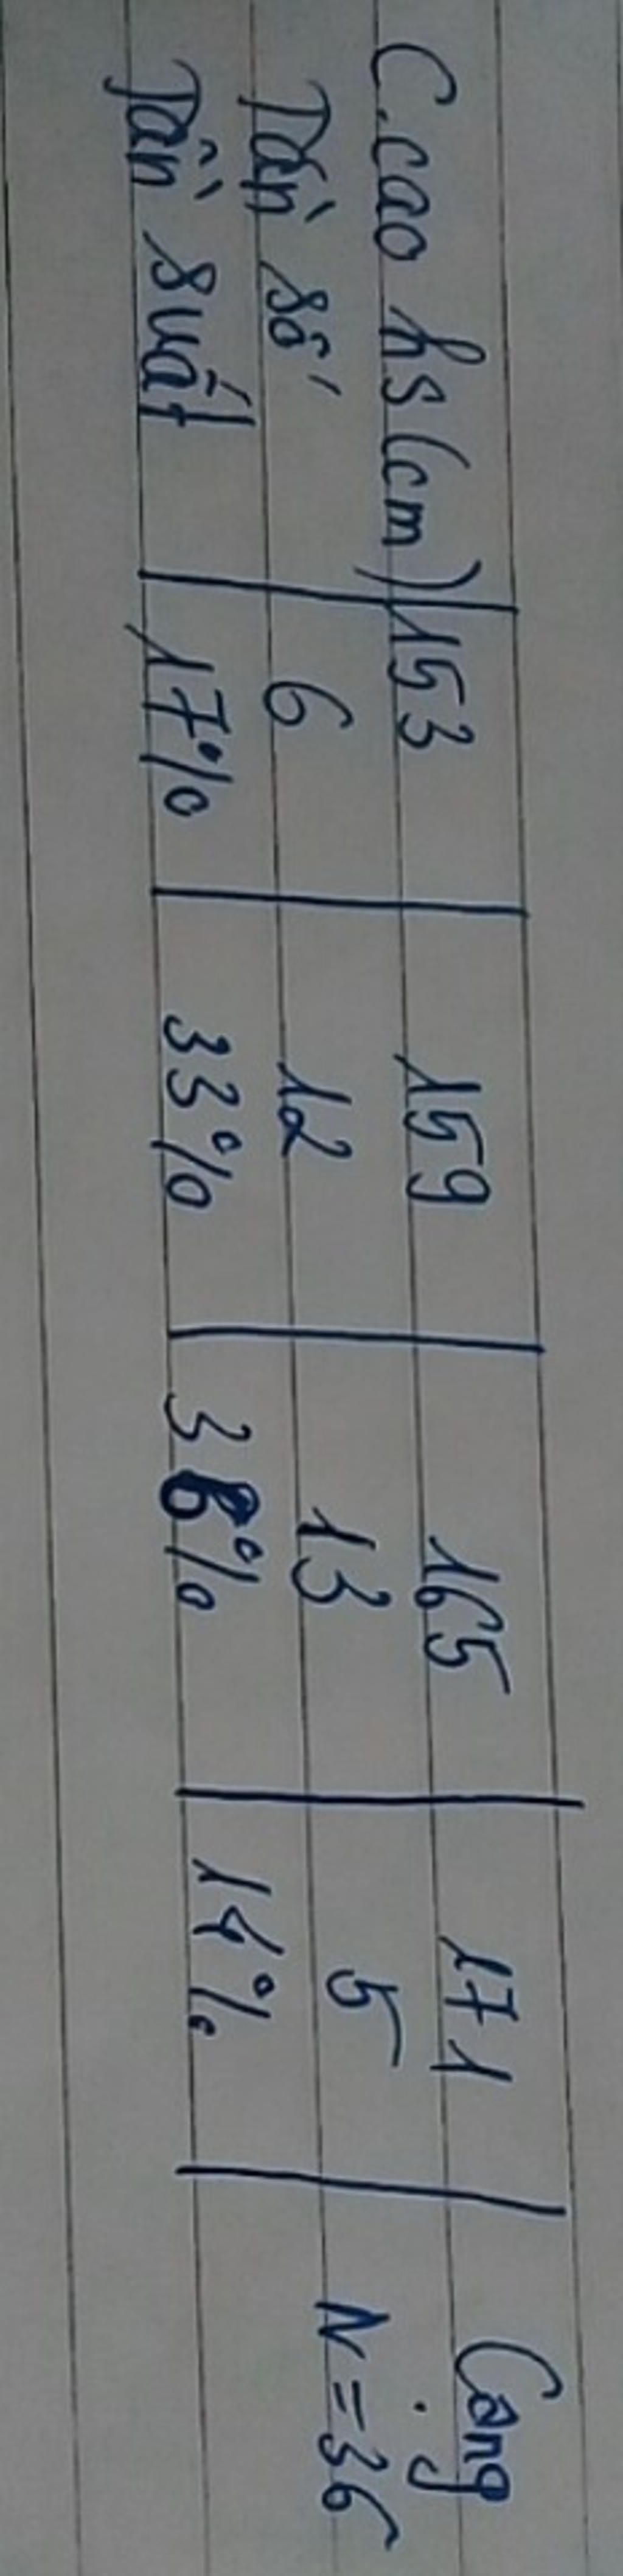 C.cao hs (cm) 153 159 165 171 Cộng
Tần số 6 12 13 5 N = 36
Tần suất 17% 33% 36% 14%